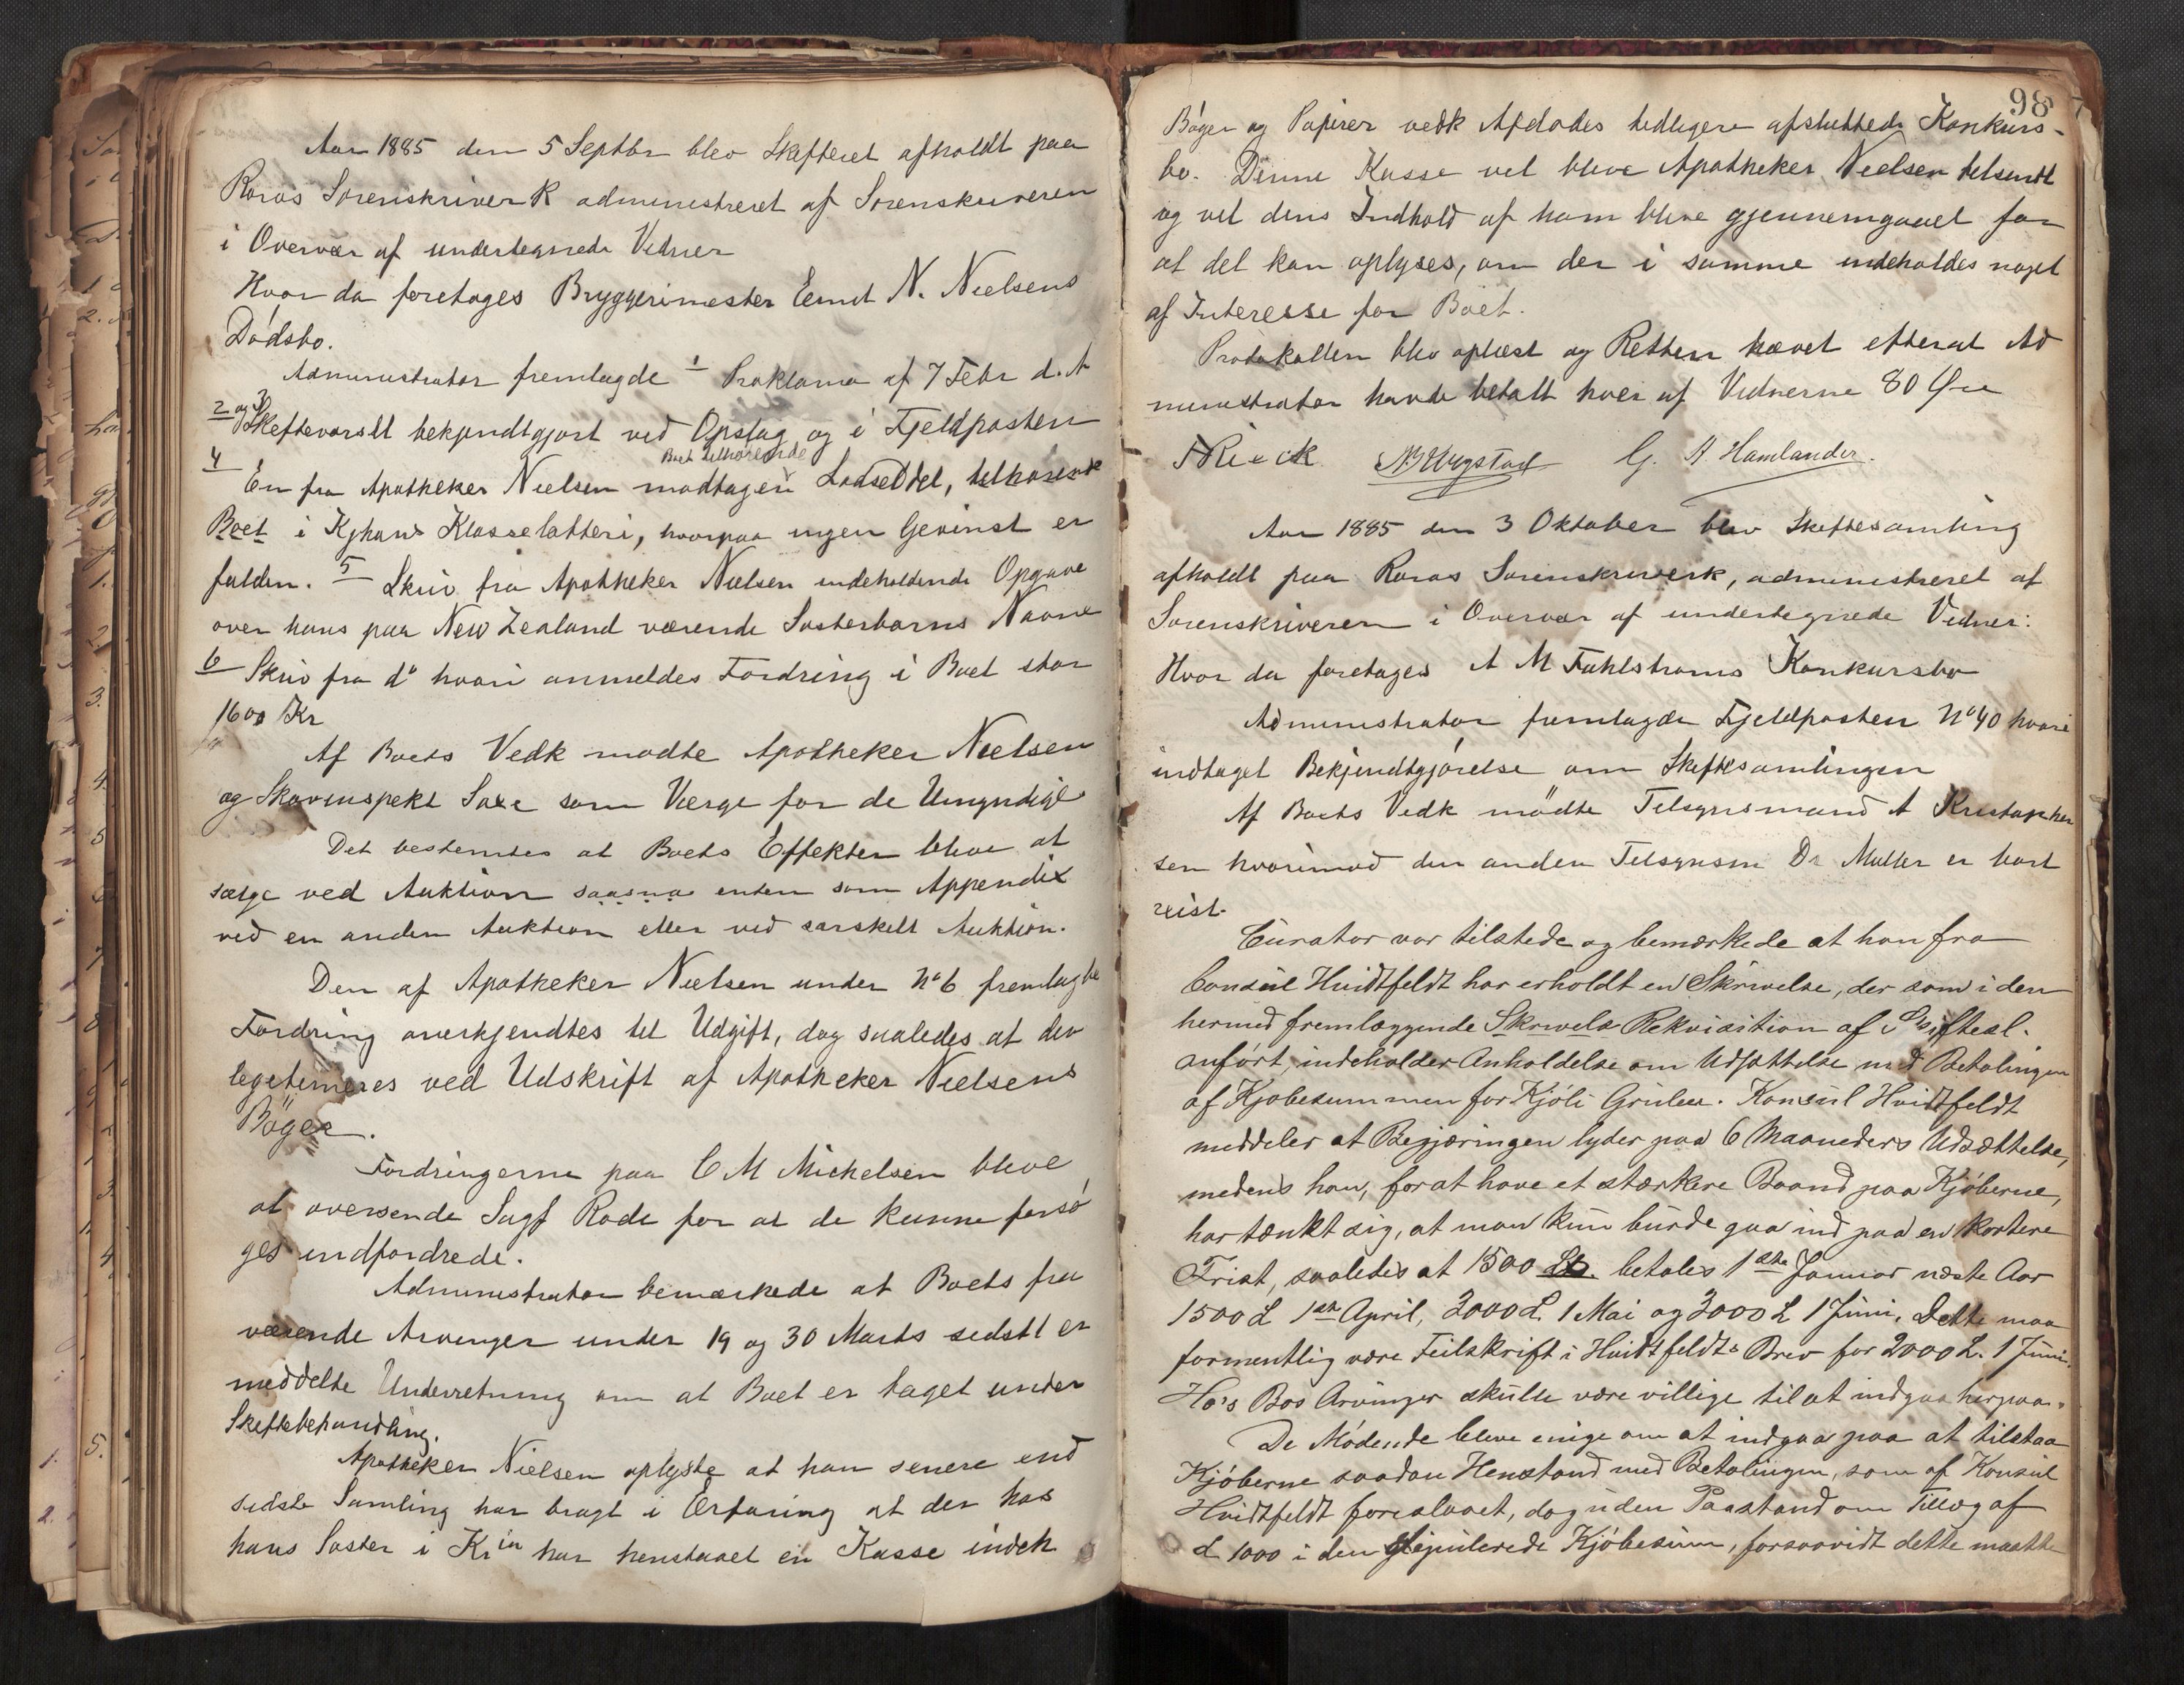 Aar 1885 den 5 Septbr blev Skifteret afholdt paa
Røros Sorenskriverk administreret af Sorenskriveren
i Overvær af undertegnede Vidner
Hvor da foretoges Bryggerimester Ernst N. Nielsens
Dødsbo.
Administrator fremlagde 1 Proklama af 7 Febr d. A
2 og 3 Skiftevarsel bekjendtgjort ved Opslag og i Fjeldposten
Boet tilhørende
4 En fra Apotheker Nielsen modtagen Lodseddel, tilhørende
Boet i Kjøhavns Klasselotteri, hvorpaa ingen Gevinst er
falden. 5 Skriv fra Apotheker Nielsen indeholdende Opgave
over hans paa New Zealand værende Søsterbørns Navne
6 Skriv fra do hvori anmeldes Fordring i Boet stor
1600 Kr
Af Boets Vedk mødte Apotheker Nielsen
og Skovinspekt Saxe som Værge for de Umyndige
Det bestemtes at Boets Effekter blive at
sælge ved Auktion saasnart enten som Appendix
ved en anden Auktion eller ved særskilt Auktion.
Den af Apotheker Nielsen under No 6 fremlagte
Fordring anerkjendtes til Udgift, dog saaledes at den
legitimeres ved Udskrift af Apotheker Nielsens
Bøger.
Fordringerne paa C M Mickelsen blive
at oversende Sagf Rode for at de kunne forsø
ges indfordrede.
Administrator bemærkede at Boets fra
værende Arvinger under 19 og 30 Marts sidstl er
meddelte Underretning om at Boet er taget under
Skiftebehandling.
Apotheker Nielsen oplyste at han senere end
sidste Samling har bragt i Erfaring at der hos
hans Søster i Kr.ia har henstaaet en Kasse indeh
98
Bøger og Papirer vedk Afdødes tidligere afsluttede Konkurs-
bo. Denne Kasse vil blive Apotheker Nielsen tilsendt
og vil dens Indhold af ham blive gjennemgaaet for
at det kan oplyses, om der i samme indeholdes noget
af Interesse for Boet.
Protokollen blev oplæst og Retten hævet efterat Ad
ministrator havde betalt hver af Vidnerne 80 Øre
G. A Hamlander.
Aar 1885 den 3 Oktober blev Skiftesamling
afholdt paa Røros Sorenskriverk, administreret af
Sorenskriveren i Overvær af undertegnede Vidner:
Hvor da foretages A M Fahlstrøms Konkursbo
Administrator fremlagde Fjeldposten No 40 hvori
indtaget Bekjendtgjørelse om Skiftesamlingen
Af Boets Vedk mødte Tilsynsmand A Kristopher
sen hvorimod den anden Tilsynsm Dr Müller er bort
reist.
Curator var tilstede og bemærkede at han fra
Consül Huidtfeldt har erholdt en Skrivelse, der som i den
hermed fremlæggende Skrivelse Rekvisition af Skiftesl.
anført, indeholder Anholdelse om Udsættelse med Betalingen
af Kjøbesummen for Kjøli Gruber. Konsül Huidtfeldt
meddeler at Begjæringen lyder paa 6 Maaneders Udsættelse,
medens han, for at have et stærkere Baand paa Kjøberne,
har tænkt sig, at man kun burde gaa ind paa en kortere
Frist, saaledes at 1500 £ betales 1ste Januar næste Aar
1500 £ 1ste April, 2000 £ 1 Mai og 3000 £ 1 Juni. Dette maa
formentlig være Feilskrift i Huidtfeldts Brev for 2000 £. 1 Juni.
Ho's Bos Arvinger skulle være villige til at indgaa herpaa.
De Mødende bleve enige om at indgaa paa at tilstaa
Kjøberne saadan Henstand med Betalingen, som af Konsül
Huidtfeldt foreslaaet, dog uden Paastand om Tillæg af
£ 1000 i den stipulerede Kjøbesum, forsaavidt dette maatte